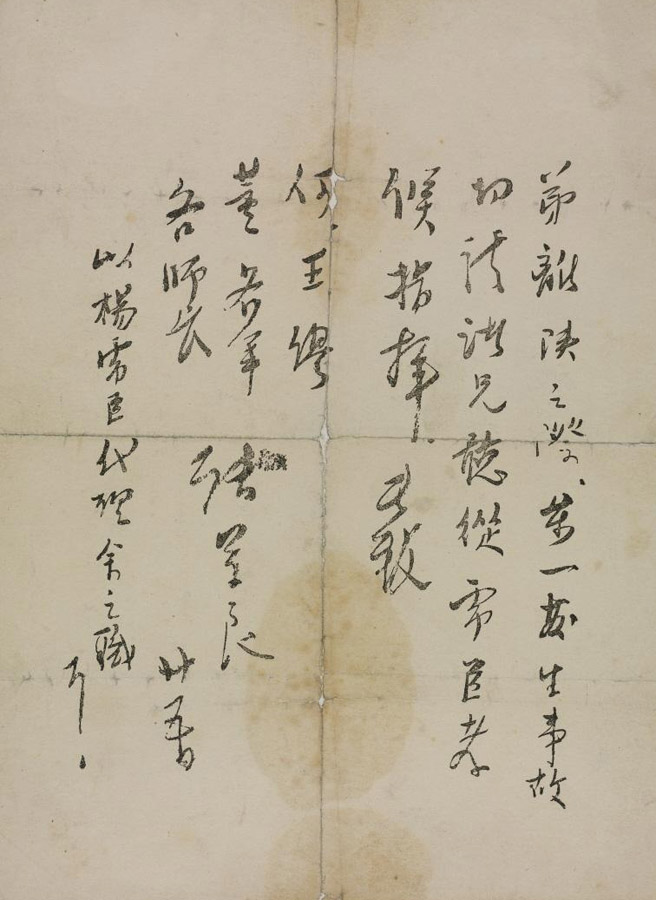 弟離陝之際、萬一發生事故
切請諸兄聽從虎臣孝
侯指揮、此致
何、王繆
董各軍
各師長
張學良
廿五日
以楊虎臣代理余之職